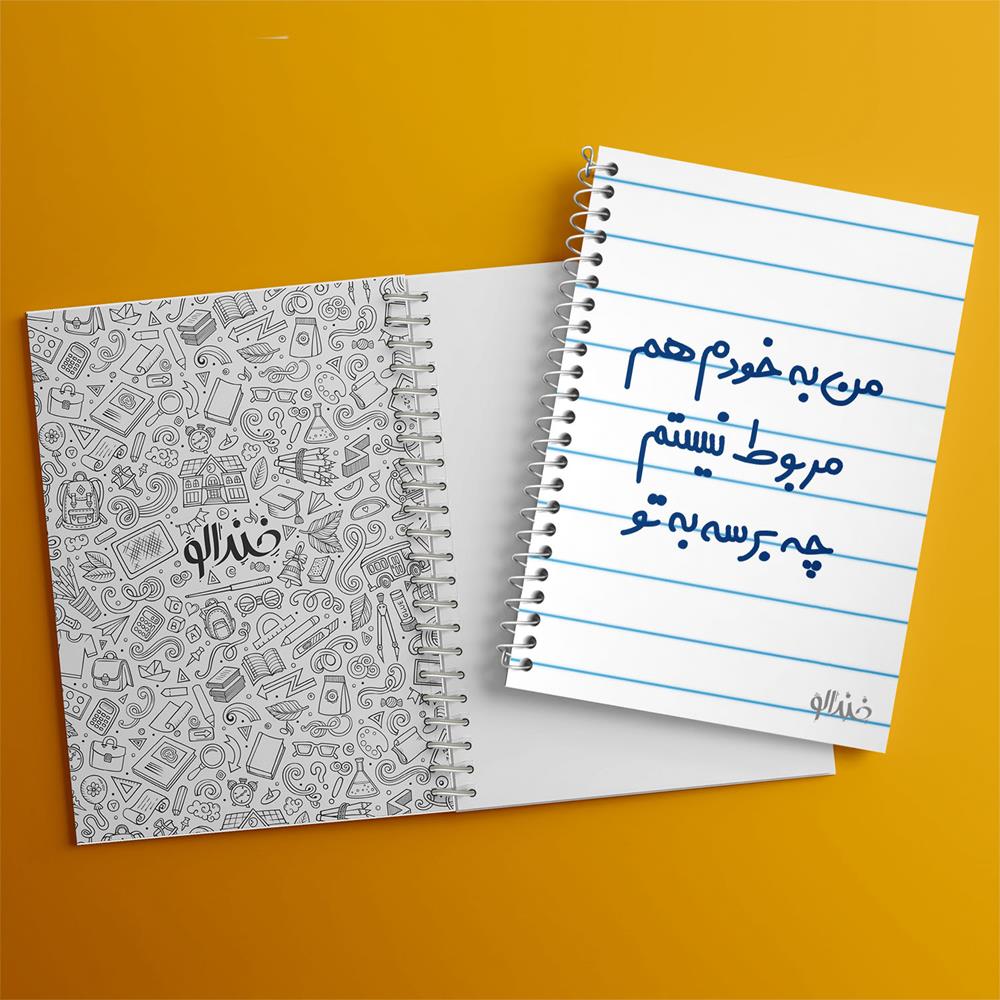 من به خودم هم
مربوط نیستم
چه برسه به تو
خندالو
خندالو